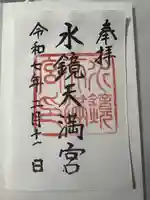 奉拝
水鏡天満宮
令和七年二月十一日